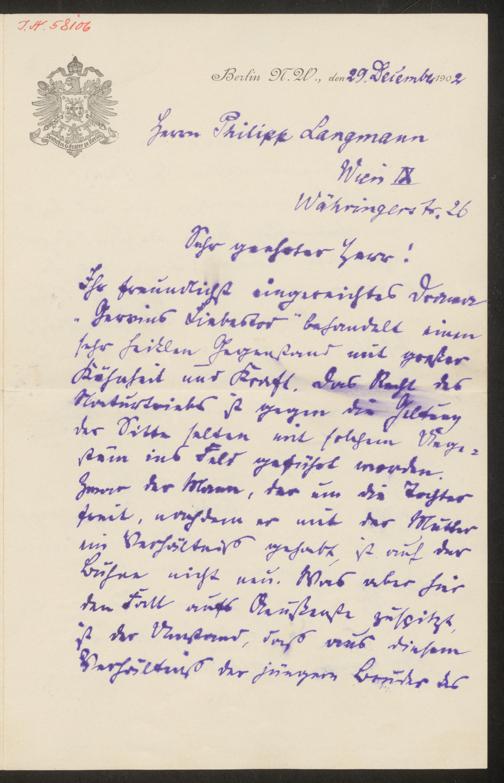 I.N. 58106
Berlin N.W., den 29. Dezember 1902
Herrn Philipp Langmann
Wien IX
Währingerstr. 26
Sehr geehrter Herr!
Ihr freundlichst eingereichtes Drama
„Gervins Liebestod" behandelt einen
sehr heiklen Gegenstand mit großer
Kühnheit und Kraft. Das Recht des
Naturtriebs ist gegen die Geltung
der Sitte selten mit solchem Unge-
stüm ins Feld geführt worden.
Zwar der Mann, der um die Tochter
freit, nachdem er mit der Mutter
ein Verhältniß gehabt, ist auf der
Bühne nicht neu. Was aber hier
den Fall aufs Aeußerste zuspitzt,
ist der Umstand, daß aus diesem
Verhältniß der jüngere Bruder des